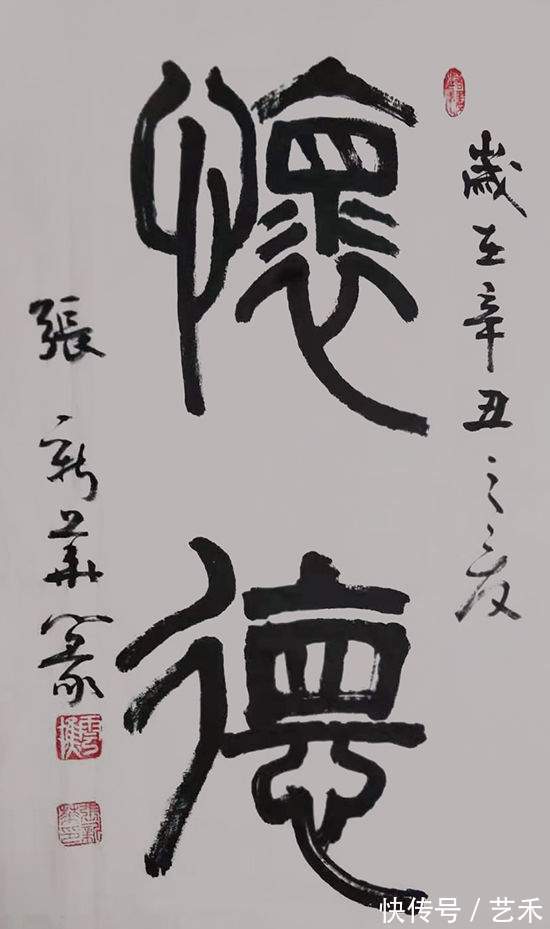 歲在辛丑之夏
懷德
張新華篆
張新
快传号／艺禾